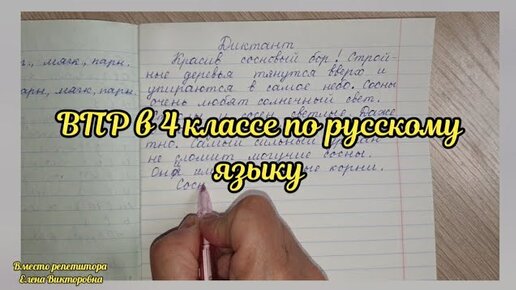 г., мягк., парн.
парн, мягк, парн.
Диктант
Красив сосновый бор! Строй-
ные деревья тянутся вверх и
упираются в самое небо. Сосны
очень любят солнечный свет.
сосен светлые. Даже
тно. Самый сильный
не сломит могучие сосны.
Они корни.
Сосн
ВПР в 4 классе по русскому
языку
Вместо репетитора
Елена Викторовна